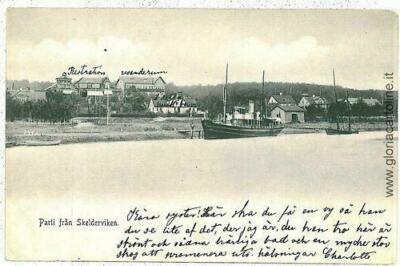 Restration
Parti från Skelderviken.
Kära syster! Här ska du få en vy så kan
du se lite af det, der jag är, du kan tro här är
skönt och sådna härliga bad och en mycke stor
skog att promenera uti. hälsningar Charlotte
www.gloriacartoline.it